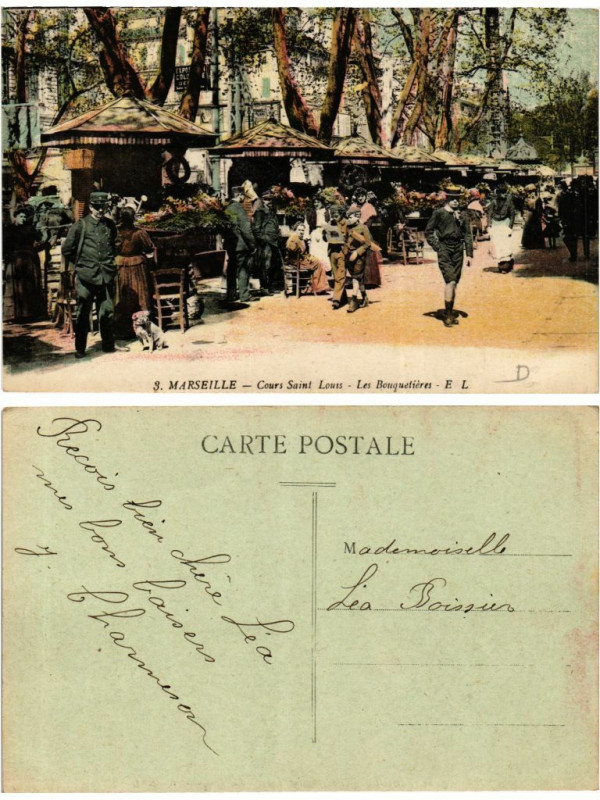 3. MARSEILLE — Cours Saint Louis - Les Bouquetières - E L
D
CARTE POSTALE
Reçois bien chère Léa
mes bons baisers
y. Charmeson
Mademoiselle
Léa Boissier